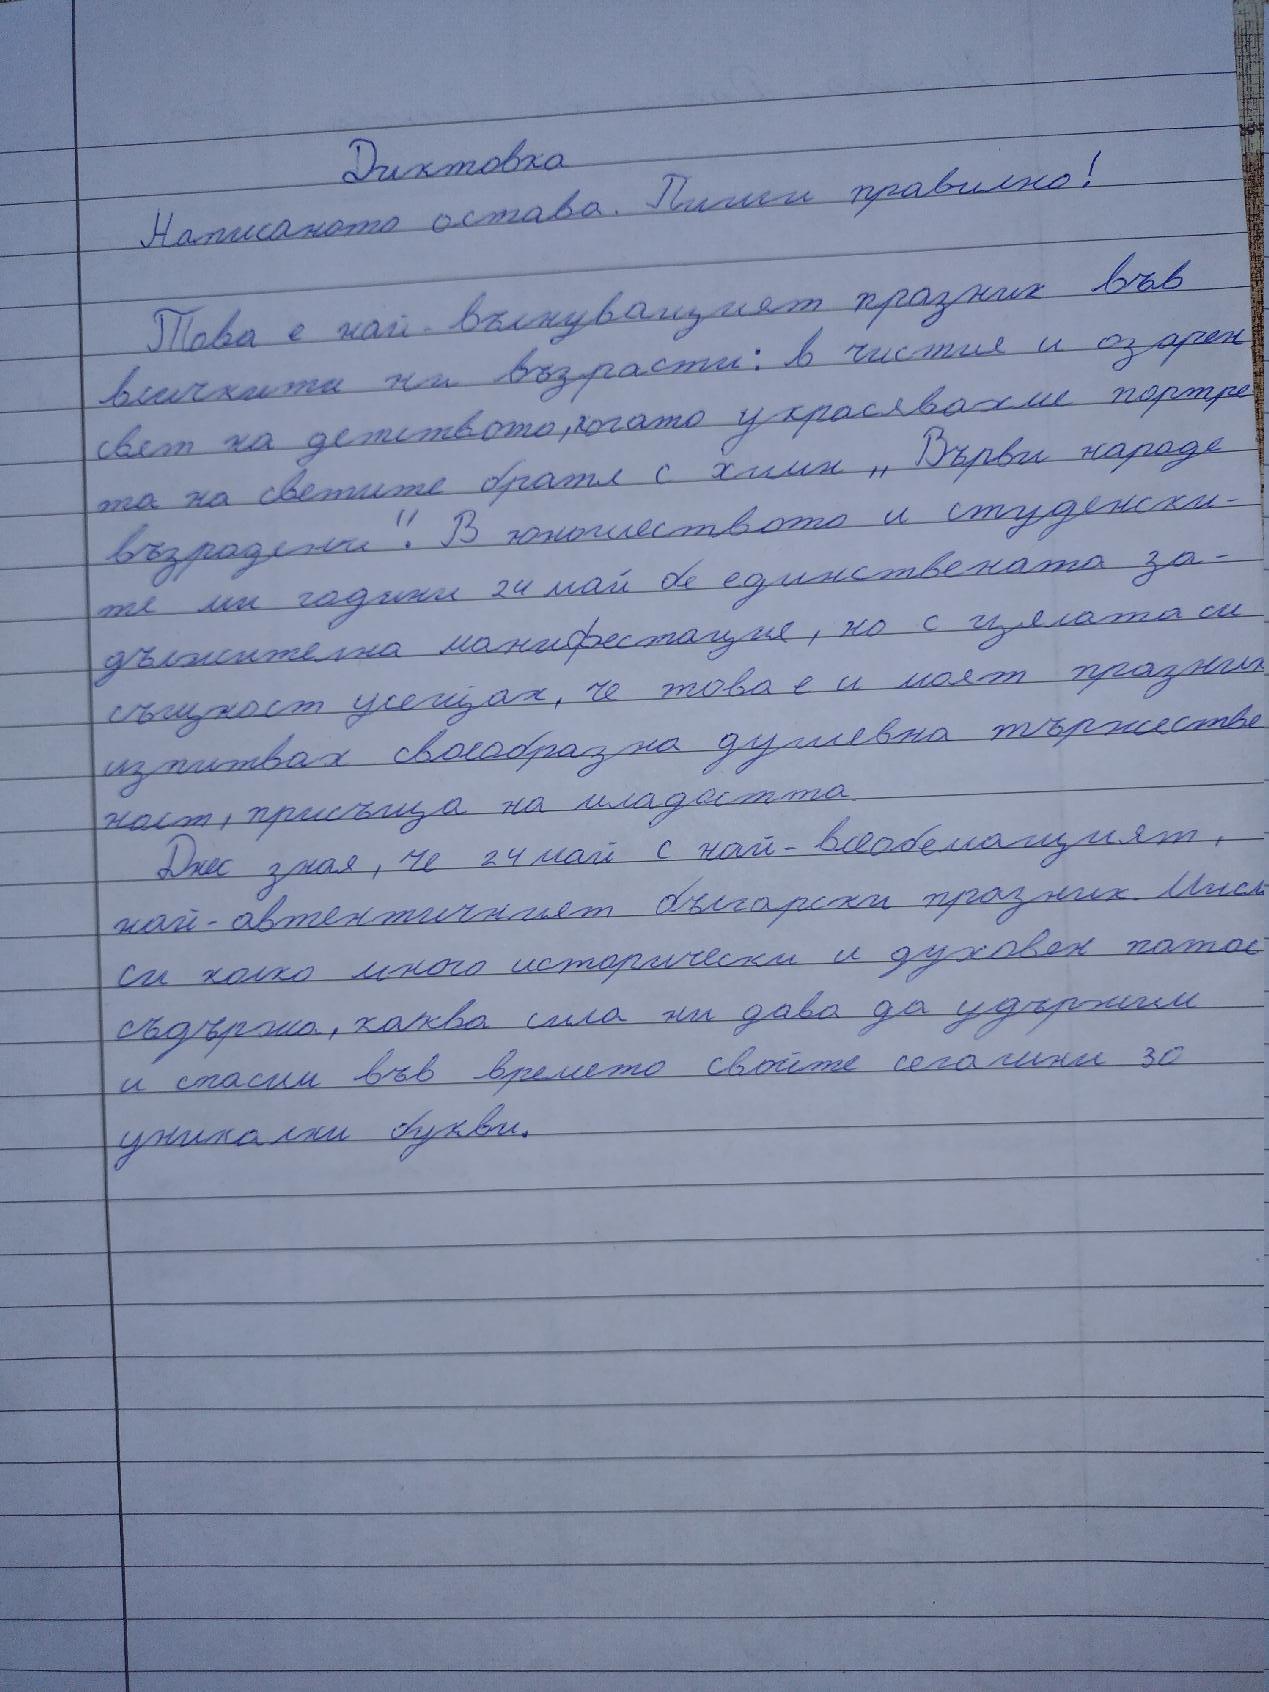 Диктовка
Написаното остава. Пиши правилно!
Това е най-вълнуващият празник във
всичките ни възрасти: в чистия и озарен
свят на детството, когато украсявахме портре
та на светите братя с химн „Върви народе
възрадени“! В юношеството и студенски-
те ми години 24 май бе единствената за-
дължителна манифестация, но с цялата си
същност усещах, че това е и моят празник
изпитвах своеобразна душевна тържестве
ност, присъща на младостта
Днес зная, че 24 май с най-всеобемащият,
най-автентичният български празник. Мисл
си колко много исторически и духовен патос
съдържа, каква сила ни дава да удържим
и спасим във времето своите сегашни 30
уникални букви.